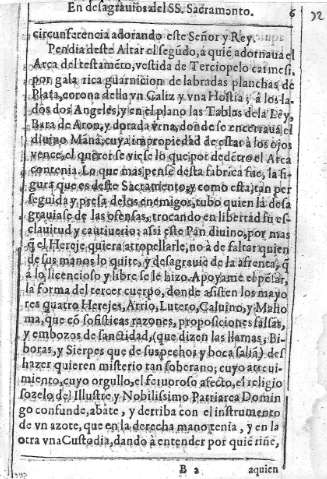 En desagrauios del SS. Sacramento. 6 32
circunferencia adorando este Señor y Rey.
Pendia deste Altar el segũdo, a quiẽ adornaua el
Arca del testamẽto, vestida de Terciopelo carmesi,
por gala rica guarnicion de labradas planchas de
Plata, corona della vn Caliz y vna Hostia; à los la-
dos dos Angeles, y en el plano las Tablas de la Ley,
Bara de Aron, y dorada vrna, donde se encerraua el
diuino Manà, cuya impropiedad de estar à los ojos
vence, el querer se viese lo que por dedẽtro el Arca
contenia. Lo que mas pense desta fabrica fue, la fi-
gura que es deste Sacramento, y como esta, tan per
seguida y presa de los enemigos, tubo quien la desa
grauiase de las ofensas, trocando en libertad su es-
clauitud y cautiuerio: assi este Pan diuino, por mas
q̃ el Hereje quiera atropellarle, no à de faltar quien
de sus manos lo quite, y desagrauie de la afrenta, q̃
à lo licencioso y libre se le hizo. Apoyame el pẽsar,
la forma del tercer cuerpo, donde asisten los mayo
res quatro Herejes, Arrio, Lutero, Caluino, y Maho
ma, que cõ sofisticas razones, proposiciones falsas,
y embozos de sanctidad, (que dizen las llamas, Bi-
boras, y Sierpes que de sus pechos y boca salia) des
hazer quieren misterio tan soberano; cuyo atreui-
miento, cuyo orgullo, el feruoroso afecto, el religio
so zelo del Illustre y Nobilissimo Patriarca Domin
go confunde, abate, y derriba con el instrumento
de vn azote, que en la derecha mano tenia, y en la
otra vna Custodia, dando à entender por quiẽ riñe,
B 2 aquien